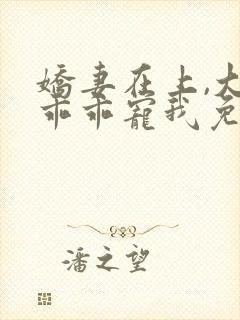 嬌妻在上,大
乖乖寵我免
潘之望